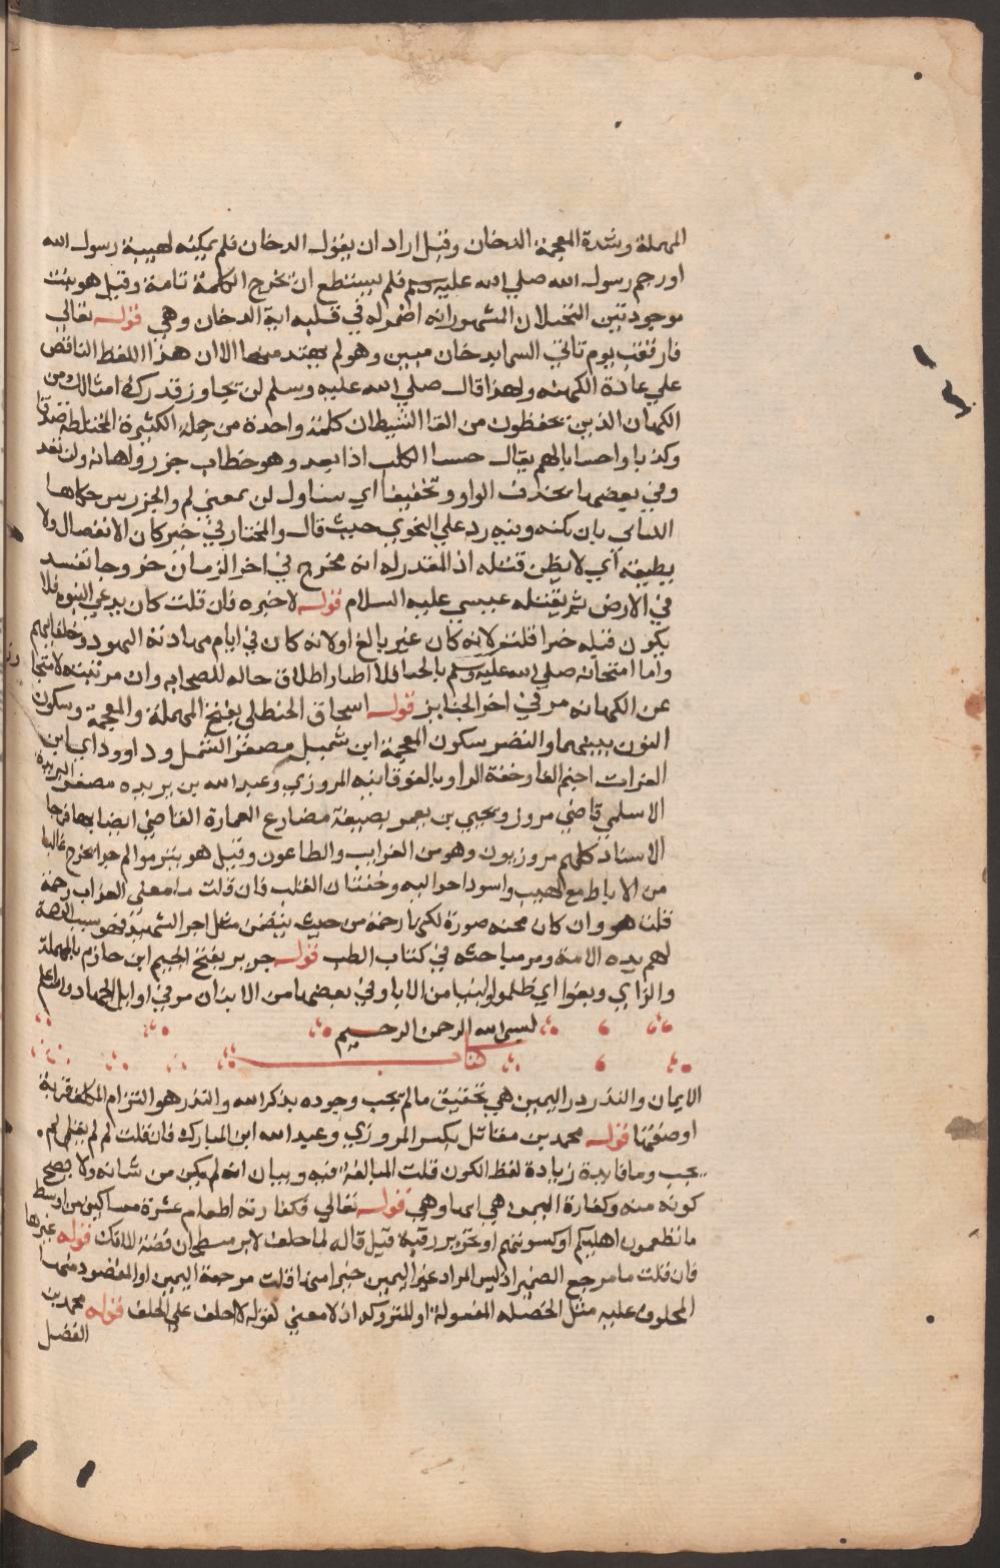 المهملة وشدة المعجمة الدخان وقيل اراد ان يقول الدخان فلم يمكنه لهيبة رسول الله
اورجم رسول الله صلي الله عليه وسلم فلم يستطع ان يخرج الكلمة تامة وقيل هو نبت
موجود بين النخيلان المشهورانه اضمر له في قلبه اية الدخان وهي قوله تعالي
فارتقب يوم تاتي السما بدخان مبين وهو لم يهتد منها الا ان هذا اللفظ الناقص
علي عادة الكهنه ولهذا قال صلي الله عليه وسلم لن تجاوز قدرك امثالك من
الكهان الذين يحفظون من القا الشيطان كلمة واحدة من جملة الكثيرة المختلطة صدقا
وكذبا واحسابالهم يقال خسا الكلب اذا بعد وهو خطاب جزر واهانه ولن تعد
وفي بعضها بحذف الواو وتخفيفا اي بتاول لن بمعني لم والجزر بس حكاها
الكساي بان يكنه وفيه رد علي النحوي حيث قال والمختار في خبر كان الانفصال ولا
يطيقه اي لا يطق قتله اذ المقدر له انه يخرج في اخر الزمان خروجا يفسد
في الارض ثم يقتله عيسي عليه السلام قوله لاخيره فان قلت كان يدعي النبوة فلا
يكون قتله خيرا قلت لانه كان غير بالغ اولانه كان في ايام مهادنة اليهود وخلفائهم
واما امتحانه صلي الله عليه وسلم بالخبا فلاظهار اطلاق حاله للصحابه وان مرتبته لا تتجا
عن الكهانه مر في اخر الجنايز قوله اسحاق الحنظلي بفتح المهملة والمعجمة وسكون
النون بينهما والنضر بسكون المعجمة ابن شميل مصغر الشمل وداوود اي ابن
الفرات بضم الفا وخفة الرا وبالفوقانيه المروزي وعبد الله بن بريده مصغر البردة
الاسلمي قاضي مروز ويحيي بن يعمر بصيغة مضارع العمارة القاضي ايضا بها فرجا
الاسناد كلهم مروزيون وهو من الغرايب والطاعون وقيل هو بثر موالم جدا يخرج غالبا
من الاباط مع لهيب واسوداد حواليه وخفقان القلب فان قلت ما معني العذاب رحمة
قلت هو وان كان محنه صورة لكنها رحمة من حيث يتضمن مثل اجر الشهيد فهو سبب الرحمة
لهم بده الامة ومر مباحثه في كتاب الطب قوله جرير بفتح الجيم ابن حازم بالمهملة
والزاي وبغوا اي ظلموا وابينا من الابا وفي بعضها من الاتيان مر في اوايل الجهاد والله اعلم
بسم الله الرحمن الرحيم
كتاب
الايمان والنذور اليمين هي تحقيق ما لم يجب وجوده بذكر الله والنذر هو التزام المكلف قربة
اوصفتها قوله محمد بن مقاتل بكسر المروزي وعبد الله ابن المبارك فان قلت لم لم يقل لم
يحب وما فايدة زيادة لفظ الكون قلت المبالغة فيه وبيان انه لم يكن من شانه ولا يصح
كونه منه وكفارة اليمين اي ايتها وهي قوله تعالي فكفارته اطعام عشرة مساكين من اوسط
ما تطعمون اهليكم اوكسوتهم اوتحرير رقبة قيل قاله لما حلف لابر مسطح ان قصة الافك قوله غيرها
فان قلت ما مرجع الضمير اذ ليس المراد غير اليمين خيرا منها قلت مرجعه اليمين او المقصود منها
المحلوف عليه مثل الخصله المفعولة او للمتروكه اذ لا معني لقوله لاحلف علي الحلف قوله محمد بن
الفضل